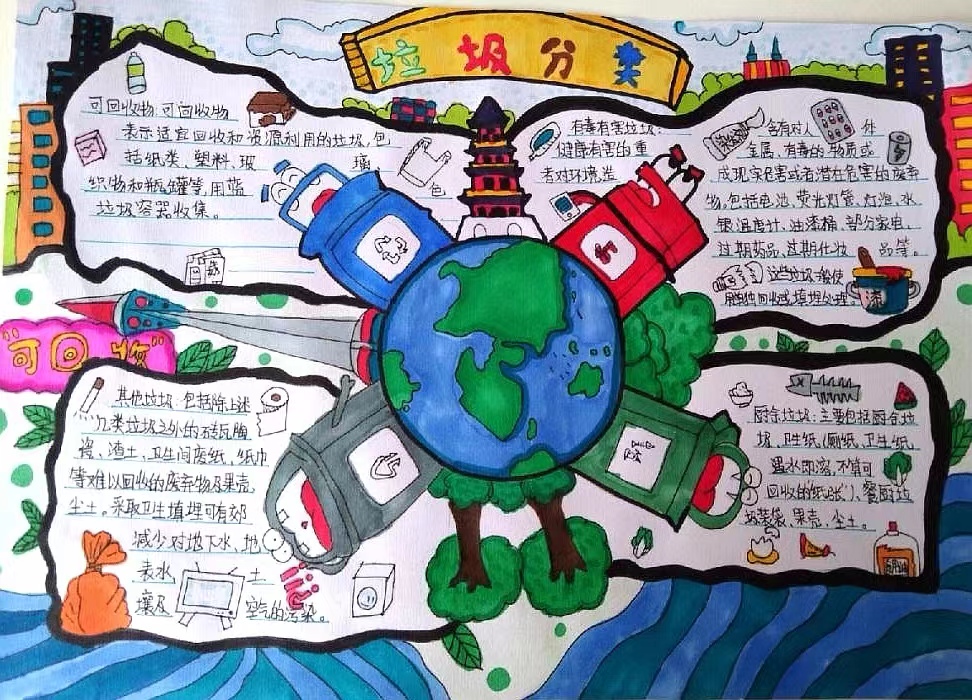 垃圾分类
可回收物:可回收物
表示适宜回收和资源利用的垃圾,包
括纸类、塑料、玻璃
织物和瓶罐等,用蓝色
垃圾容器收集。
有毒有害垃圾:
含有对人 件
健康有害的重
金属、有毒的物质或
者对环境造
成现实危害或者潜在危害的废弃
物,包括电池、荧光灯管、灯泡、水
银温度计、油漆桶、部分家电、
过期药品、过期化妆品等。
这些垃圾一般使
用单独回收或填埋处理
漆
"可回收"
其他垃圾:包括除上述
几类垃圾之外的砖瓦陶
瓷、渣土、卫生间废纸、纸巾
等难以回收的废弃物及果壳、
尘土。采取卫生填埋可有效
减少对地下水、地
表水 土
壤及 空气的污染。
厨余垃圾:主要包括厨余垃
圾、卫生纸(厕纸、卫生纸,
遇水即溶,不算可
回收的纸张")、餐厨垃
圾装袋、果壳、尘土。